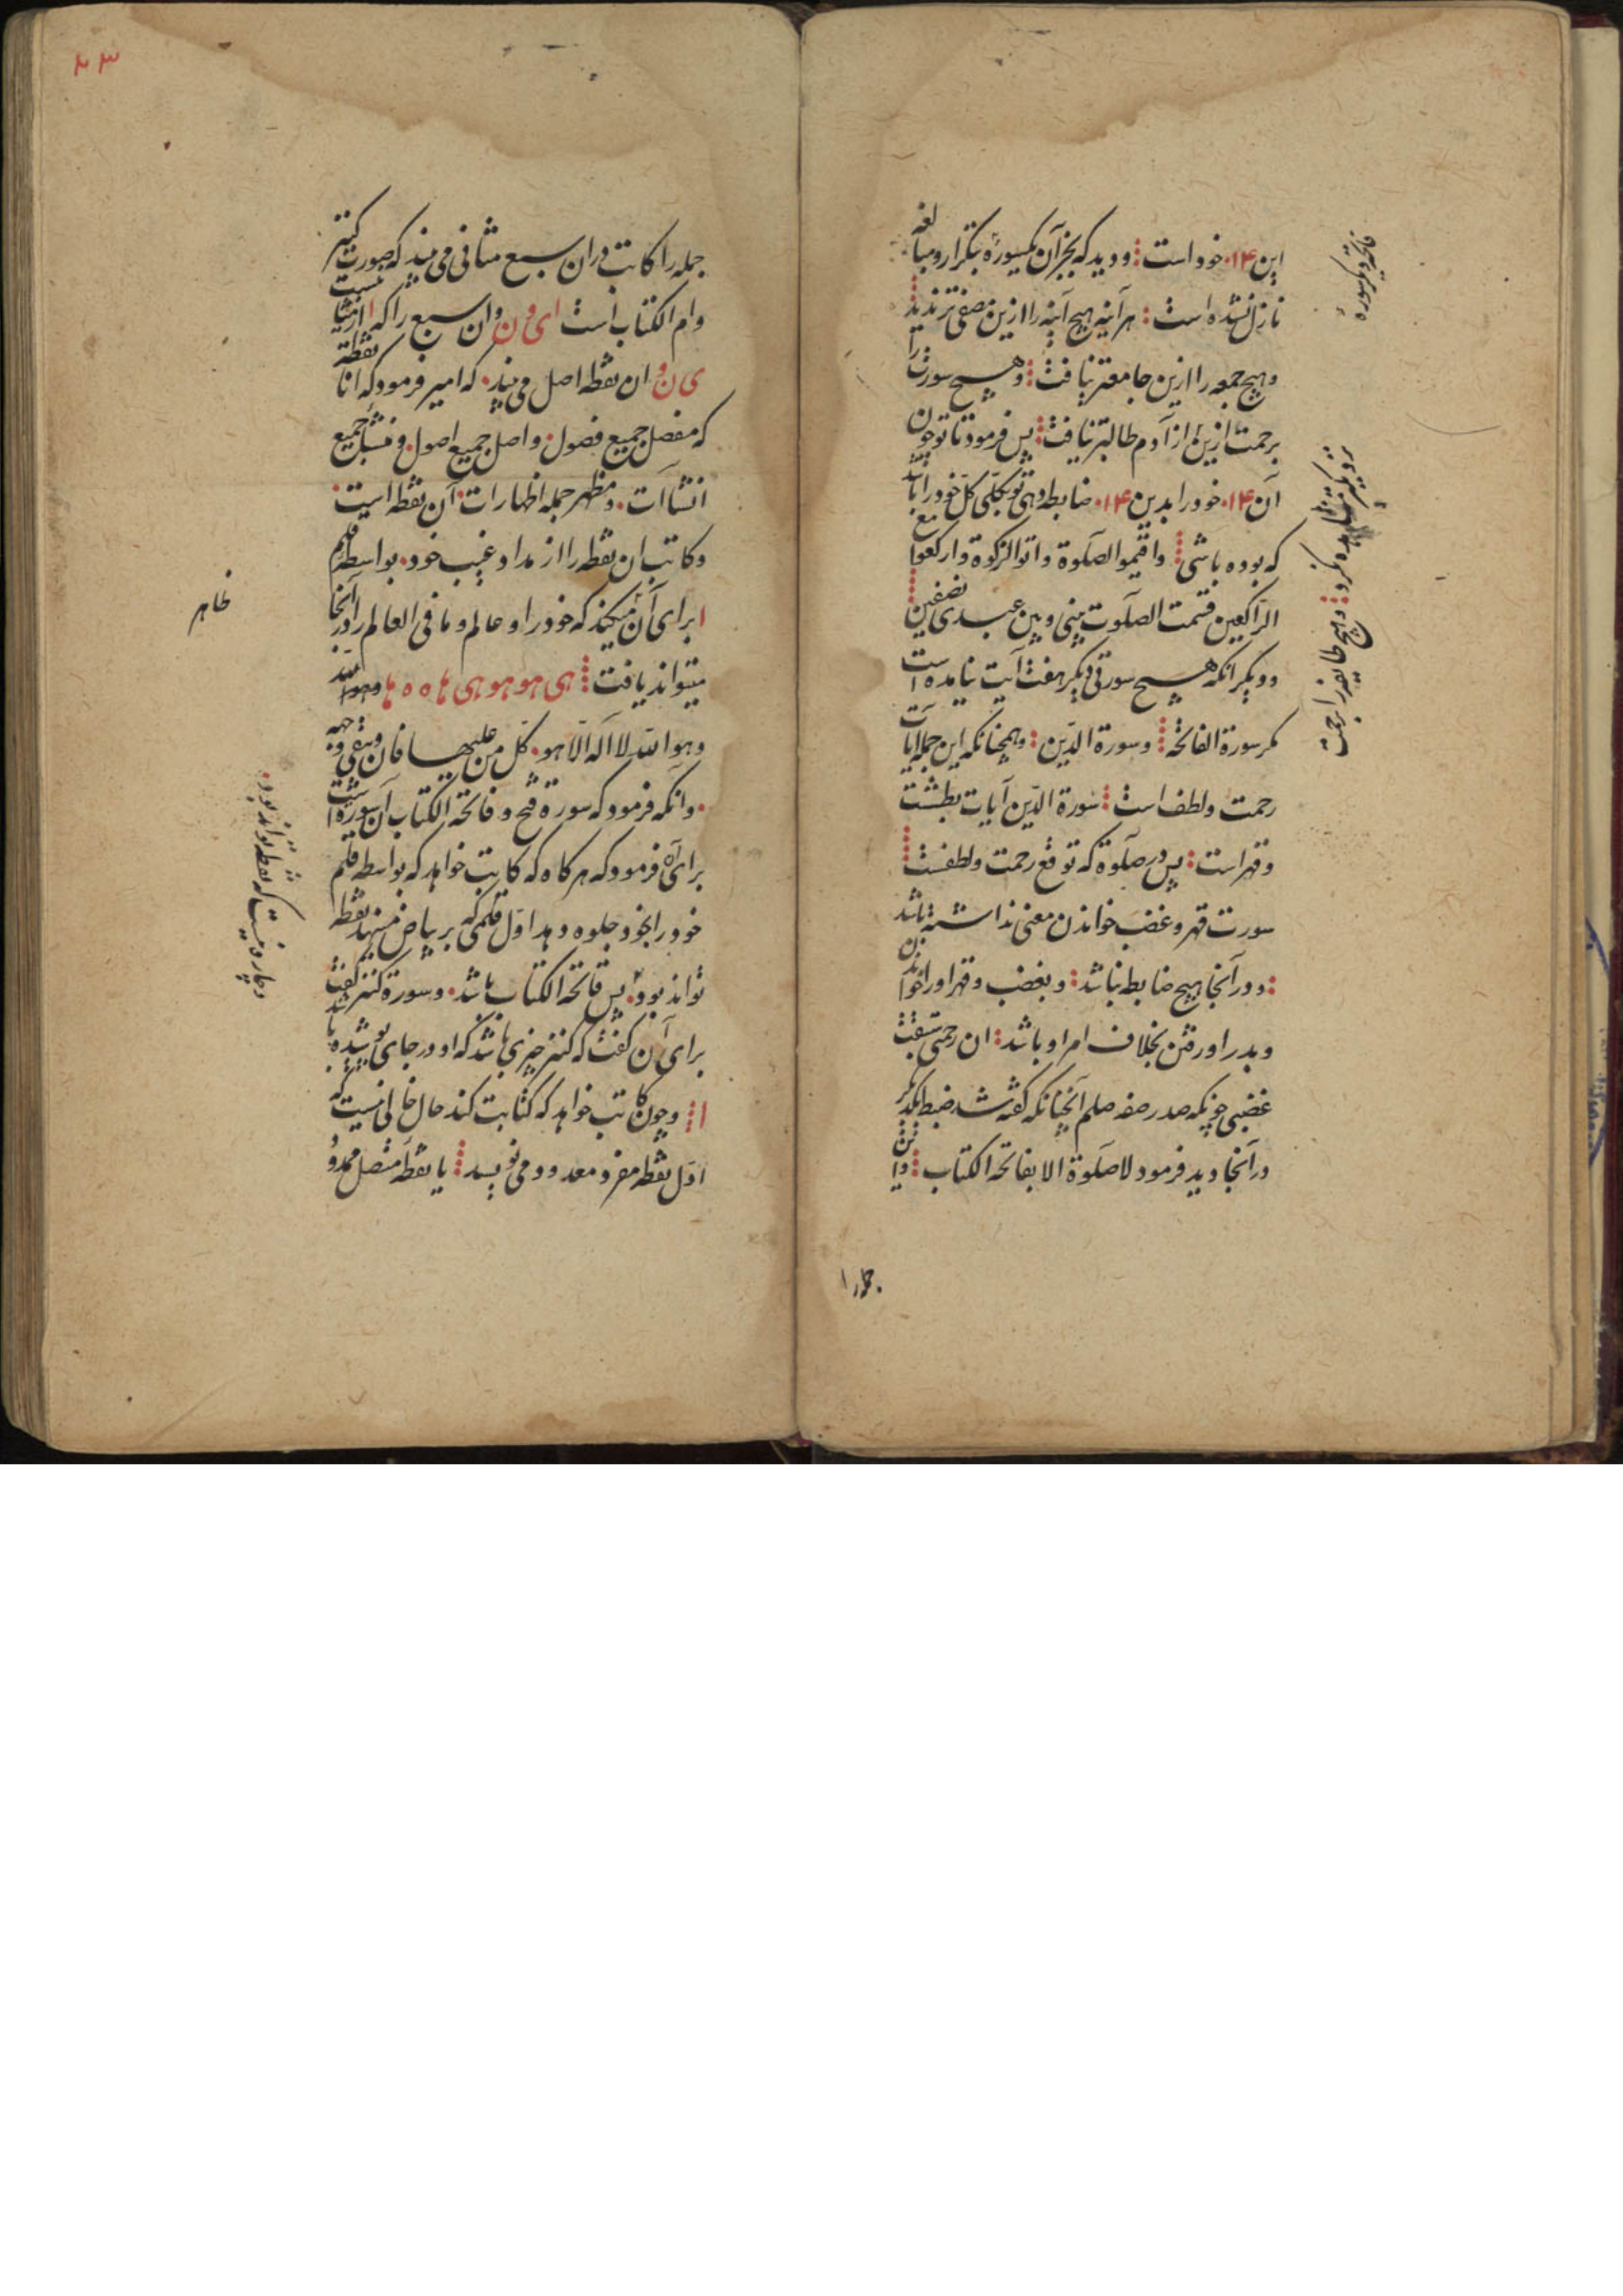 این ۱۴ خود است و دید که بجز آن یکسوره بتکرار ومبالغه
نازل نشده است هر آینه هیچ آینه را ازین مصفی تر ندید
وهیچ جمعه را ازین جامعتر نیافت وهیچ سورت را
برحمت ازین از آدم طالبتر نیافت پس فرمود تا تو چون
آن ۱۴ خود را بدین ۱۴ ضابطه دهی تو بکلی کل خود را
که بوده باشی واقیموا الصلوة واتوا الزکوة وارکعوا مع
الراکعین قسمت الصلوت بینی وبین عبدی نصفین
ودیگر آنکه هیچ سورتی دیگر هفت آیت نیامده است
مکر سورة الفاتحة وسورة الدین وهمچنانکه این جمله آیات
رحمت ولطف است سورة الدین آیات بطشت
وقهر است پس در صلوة که توقع رحمت ولطفست
سورت قهر وغضب خواندن معنی نداشته باشد
ودر آنجا هیچ ضابط نباشد وبغضب وقهر او را خواندن
وبدر او رفتن بخلاف امر او باشد ان رحمتی سبقت
غضبی چونکه صدر صفه صلم آنچنانکه گفته شد ضبط
در آنجا دید فرمود لا صلوة الا بفاتحة الکتاب
وهیچ طایفه را برحمت
۴۳
جمله را کاتب در ان سبع مثانی می بیند که صورت کنز
وام الکتاب است ا ی و ن وان سبع را که ا از
ی ن و ان نقطه اصل می بیند که امیر فرمود که انا نقطة
که مفصل جمیع فصول واصل جمیع اصول ومنشأ جمیع
انشاآت ومظهر جمله اظهارات آن نقطه است
وکاتب ان نقطه را از مداد غیب خود بواسطه قلم
ا برای آن میکند که خود را وعالم وما فی العالم را در آنجا
میتواند یافت هی هو هو هی ها ه ه ها وهو الله
وهو الله لا اله الا هو کل من علیها فان ویبقی وجه
وآنکه فرمود که سورة فتح وفاتحة الکتاب آن سوره است
برای آن فرمود که هرکاه که کاتب خواهد که بواسطه قلم
خود را بخود جلوه دهد اول قلمی که بر بیاض می نهد نقطه
تواند بود پس فاتحة الکتاب باشد وسورة کنز گفت
برای آن گفت که کنز چیزی باشد که او در جای پوشیده باشد
ا وچون کاتب خواهد که کتابت کند حال خالی نیست که
اول نقطه مفرد معدود می نویسد یا نقطه متصل محدود
ظاهر
وچاره نیست که نقطه تواند بود